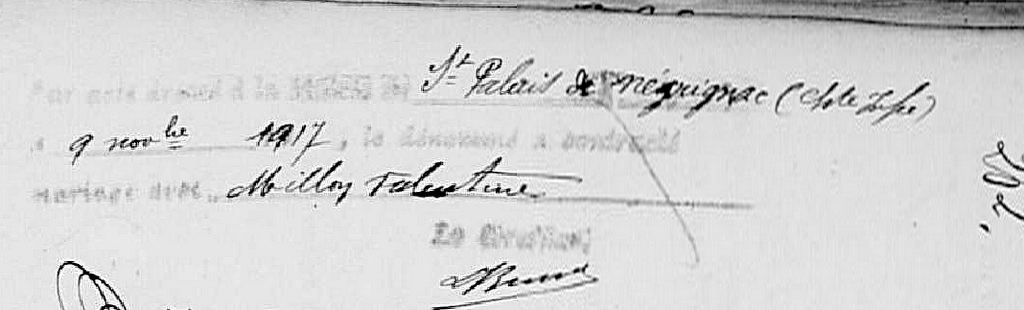 Par acte dressé à la Mairie de St Palais de Négrignac (Chte Infre)
le 9 novbre 1917, le dénommé a contracté
mariage avec Milloy Valentine
Le Greffier,